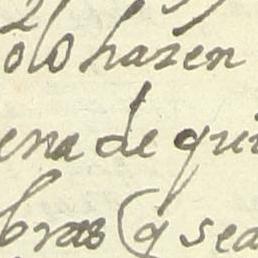 olo hazen
ena de qui
bras (q sea